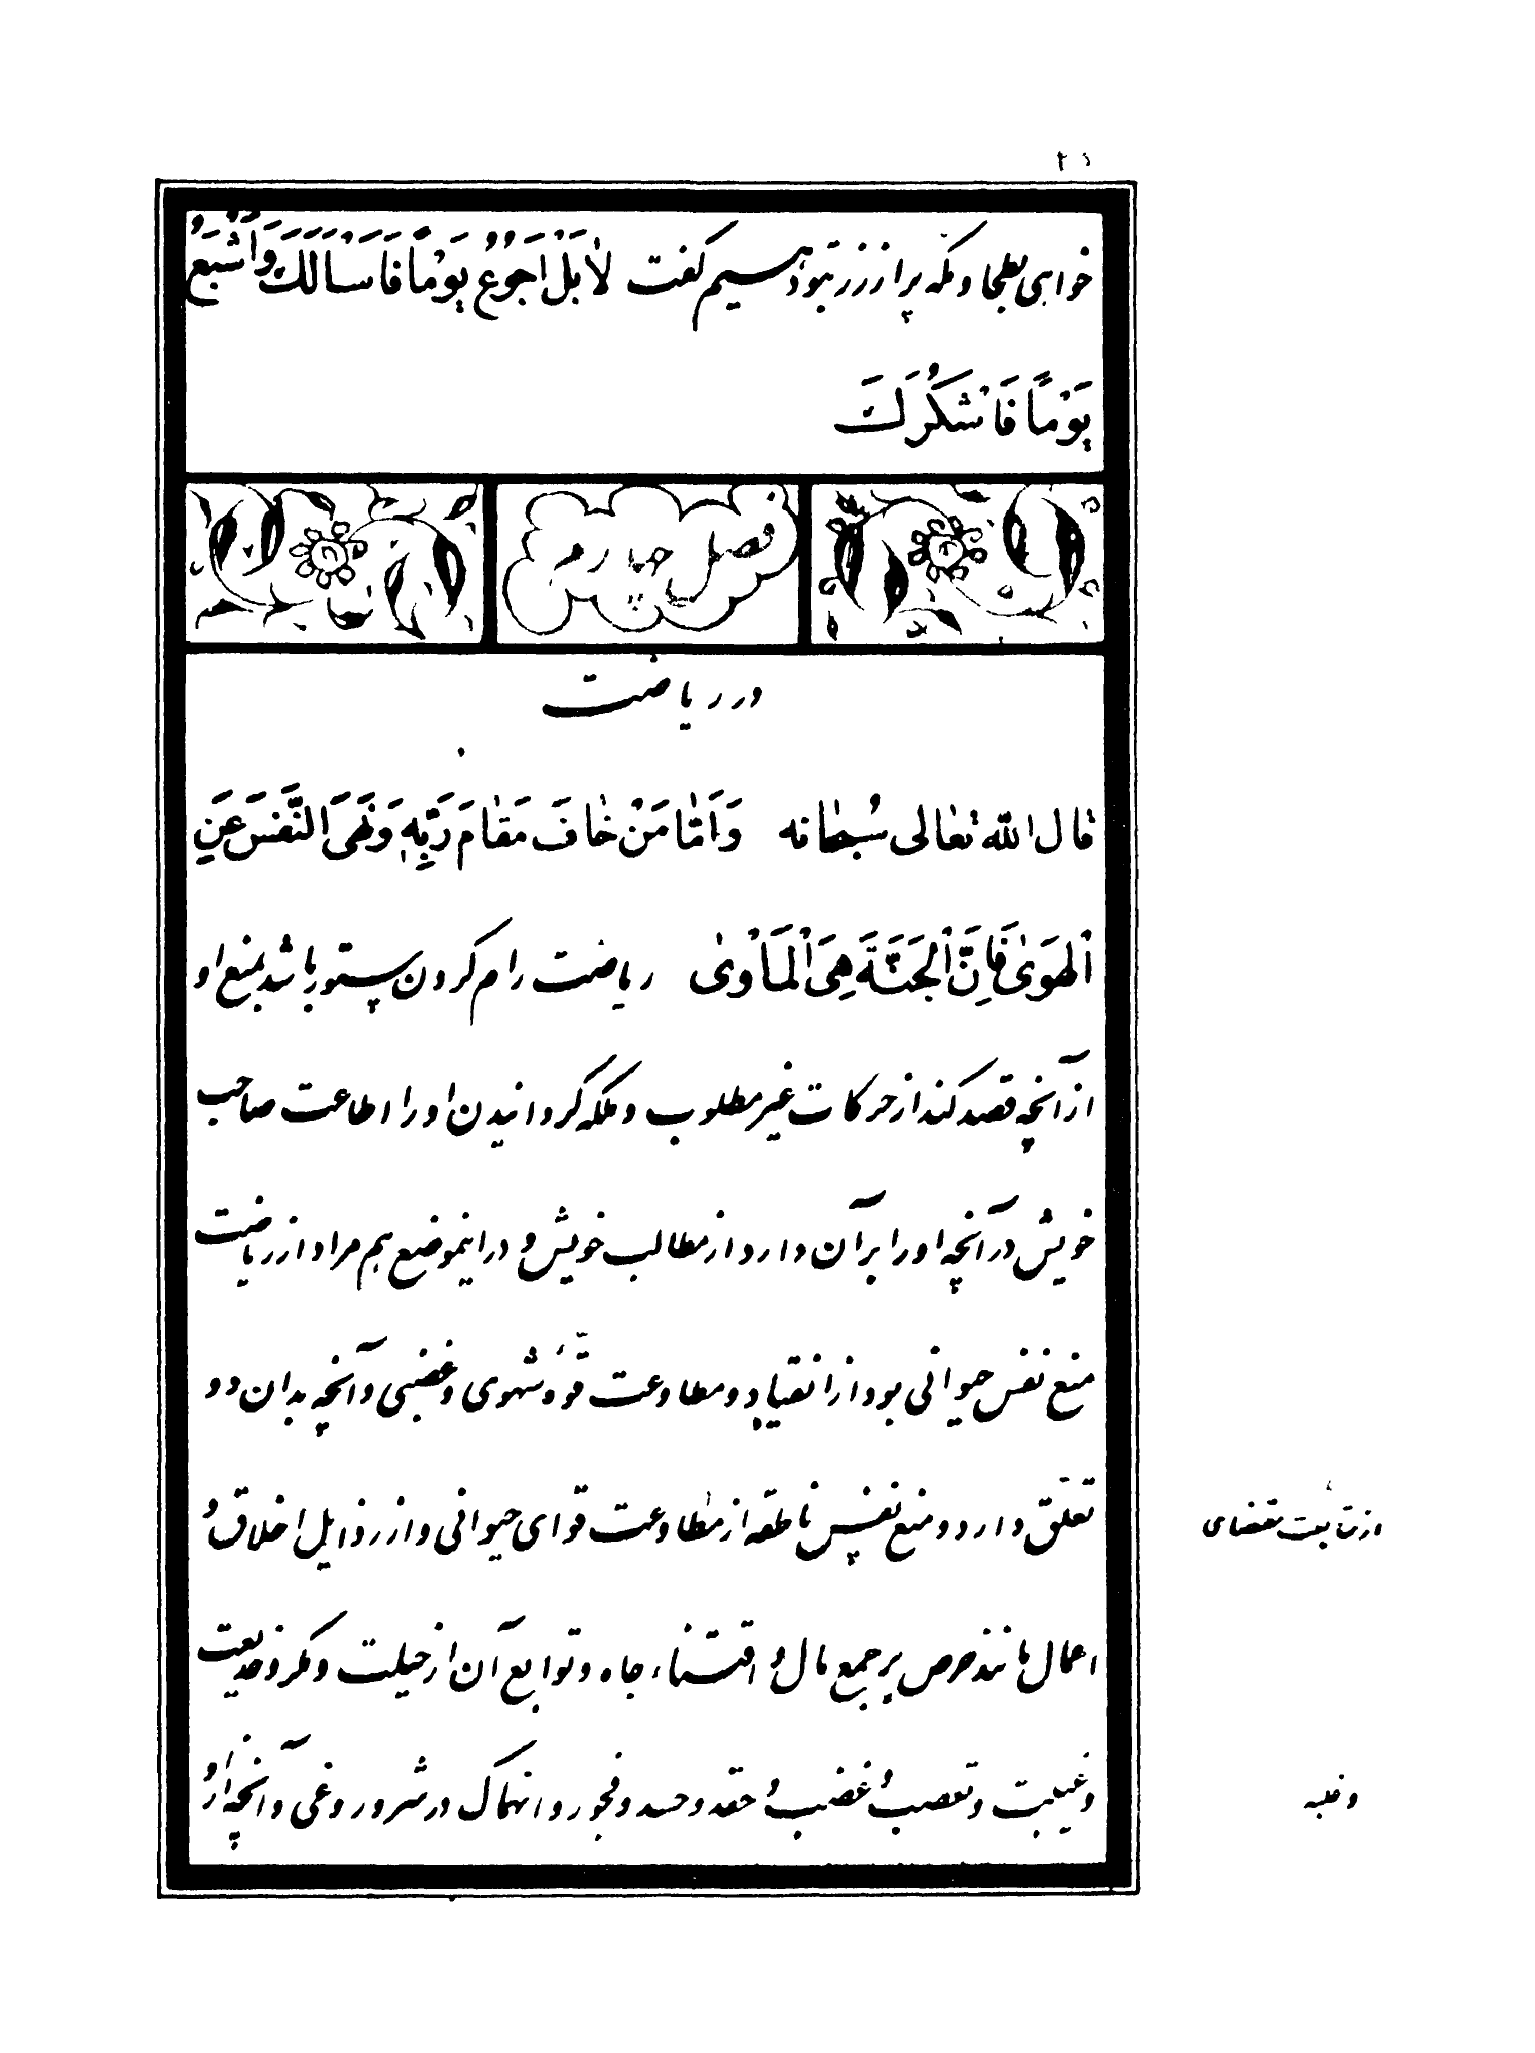 ۲۱
خواهی بطحا و مکه پر از زر بتو دهیم گفت لاٰ بَلْ اَجُوُعُ یَوْماً فَاَسْاَلَكَ وَاَشْبَعُ
یَوْماً فَاَشْكُرَكَ
فصل چهارم
در ریاضت
قال اللّه تعالی سُبحانه وَاَمّٰا مَنْ خٰافَ مَقٰامَ رَبِّهِ وَنَهَی النَّفْسَ عَنِ
الْهَوٰیٰ فَاِنَّ الْجَنَّةَ هِیَ الْمَأْوٰیٰ ریاضت رام کردن ستور باشد بمنع او
از آنچه قصد کند از حرکات غیر مطلوب و ملکه گردانیدن او را اطاعت صاحب
خویش در آنچه او را بر آن دارد از مطالب خویش و در اینموضع هم مراد از ریاضت
منع نفس حیوانی بود از انقیاد و مطاوعت قوّه شهوی و غضبی و آنچه بدان دو
تعلّق دارد و منع نفس ناطقه از مطاوعت قوای حیوانی و از رذایل اخلاق و
اعمال مانند حرص بر جمع مال و اقتناء جاه و توابع آن از حیلت و مکر و خدیعت
و غیبت و تعصب و غضب و حقد و حسد و فجور و انهماک در شرور و غی و آنچه از و
از متابعت مقتضای
و غلبه